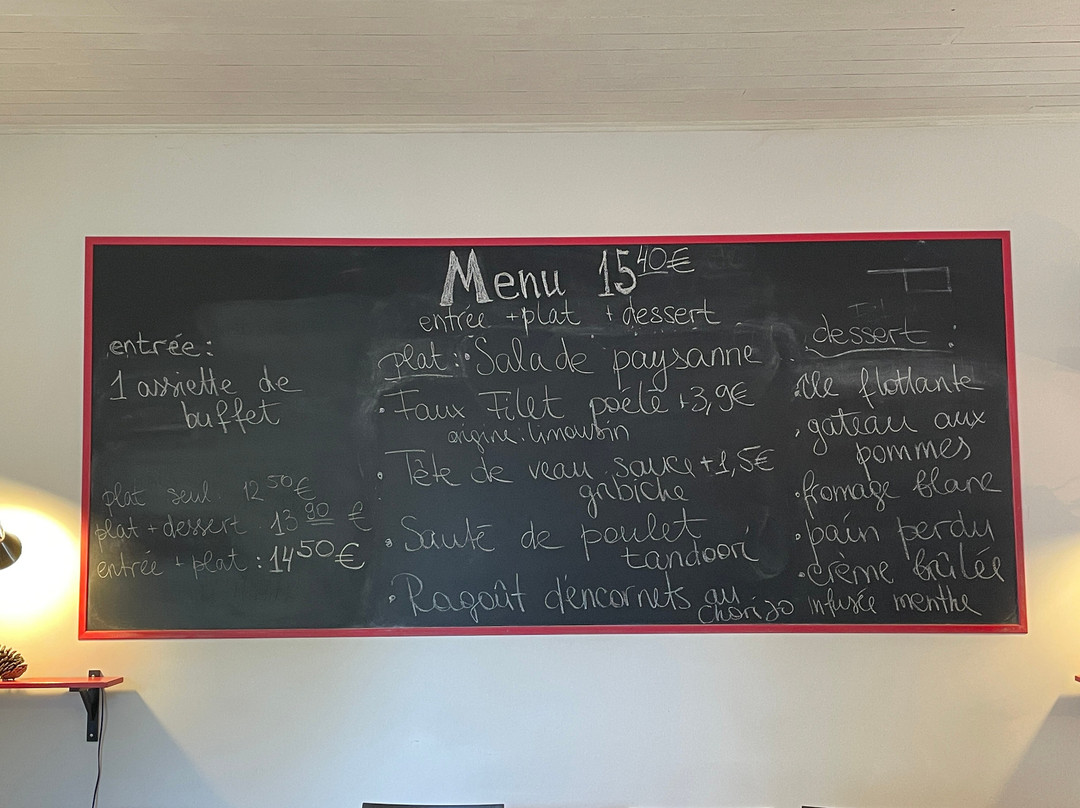 Menu 15 40€
entrée + plat + dessert
entrée :
1 assiette de
buffet
plat seul : 12 50€
plat + dessert : 13 90 €
entrée + plat : 14 50€
plat : • Salade paysanne
• Faux Filet poêlé +3,9€
origine : limousin
• Tête de veau sauce +1,5€
gribiche
• Sauté de poulet
tandoori
• Ragoût d'encornets au
chorizo
dessert :
• île flottante
• gateau aux
pommes
• fromage blanc
• pain perdu
• crème brûlée
infusée menthe